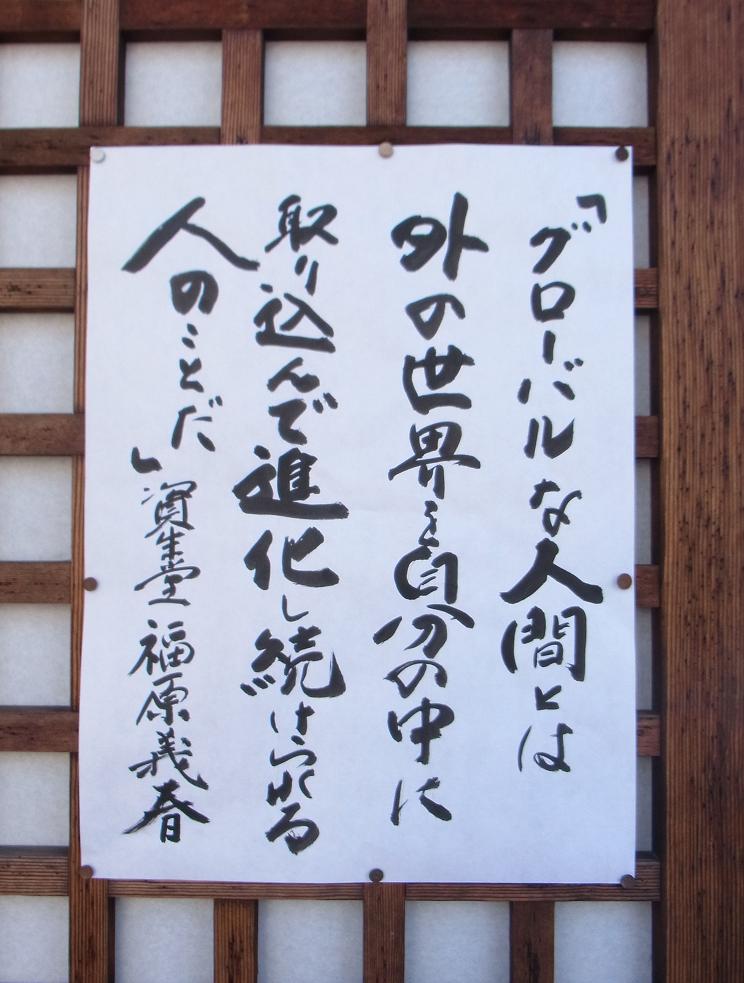 「グローバルな人間とは
外の世界を自分の中に
取り込んで進化し続けられる
人のことだ」資生堂 福原義春